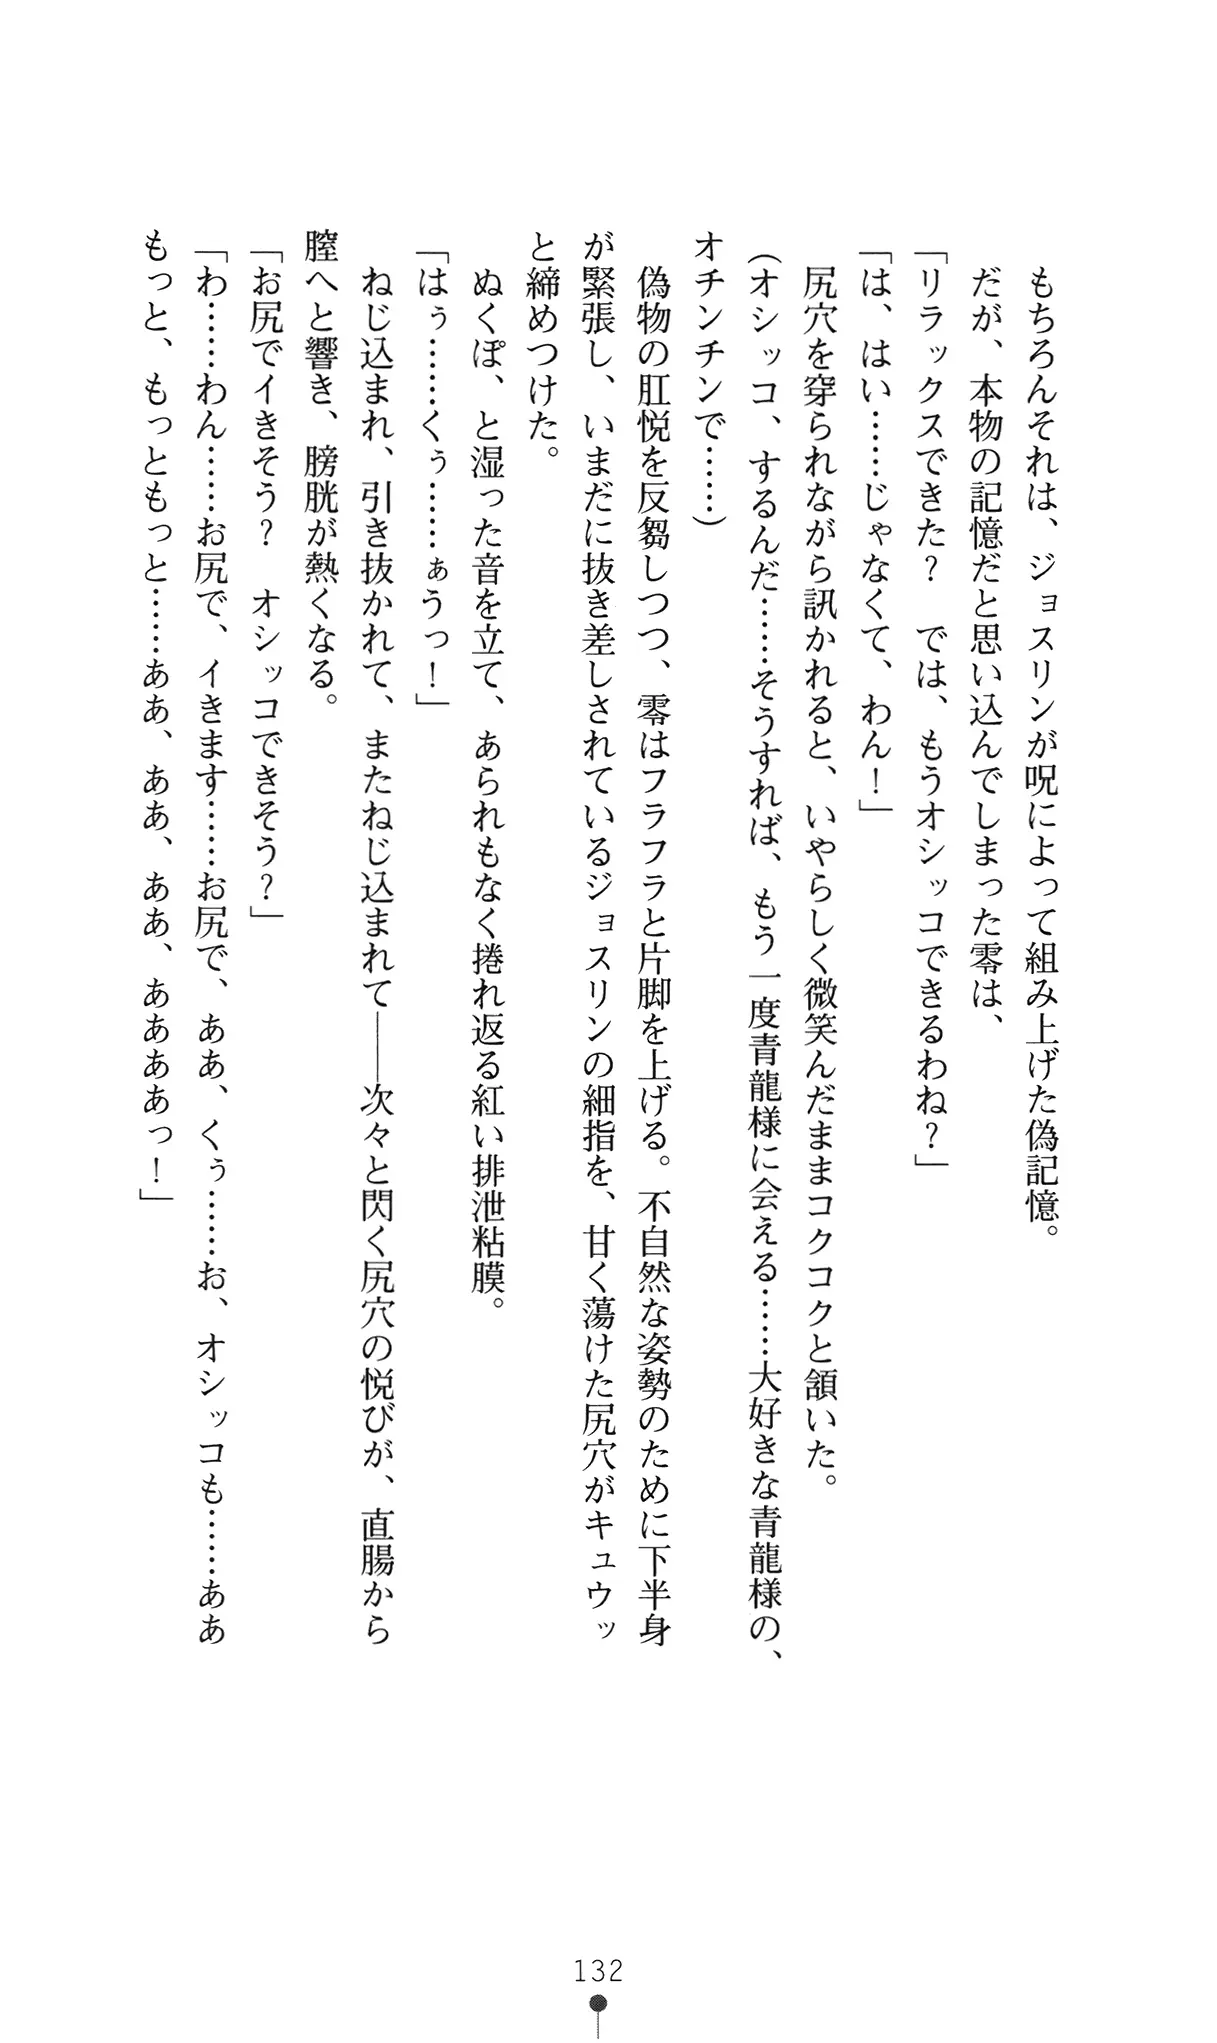 もちろんそれは、ジョスリンが呪によって組み上げた偽記憶。
だが、本物の記憶だと思い込んでしまった零は、
「リラックスできた？　では、もうオシッコできるわね？」
「は、はい……じゃなくて、わん！」
尻穴を穿られながら訊かれると、いやらしく微笑んだままコクコクと頷いた。
（オシッコ、するんだ……そうすれば、もう一度青龍様に会える……大好きな青龍様の、
オチンチンで……）
偽物の肛悦を反芻しつつ、零はフラフラと片脚を上げる。不自然な姿勢のために下半身
が緊張し、いまだに抜き差しされているジョスリンの細指を、甘く蕩けた尻穴がキュウッ
と締めつけた。
ぬくぽ、と湿った音を立て、あられもなく捲れ返る紅い排泄粘膜。
「はぅ……くぅ……ぁうっ！」
ねじ込まれ、引き抜かれて、またねじ込まれて――次々と閃く尻穴の悦びが、直腸から
膣へと響き、膀胱が熱くなる。
「お尻でイきそう？　オシッコできそう？」
「わ……わん……お尻で、イきます……お尻で、ああ、くぅ……お、オシッコも……ああ
もっと、もっともっと……ああ、ああ、ああ、ああああっ！」
132